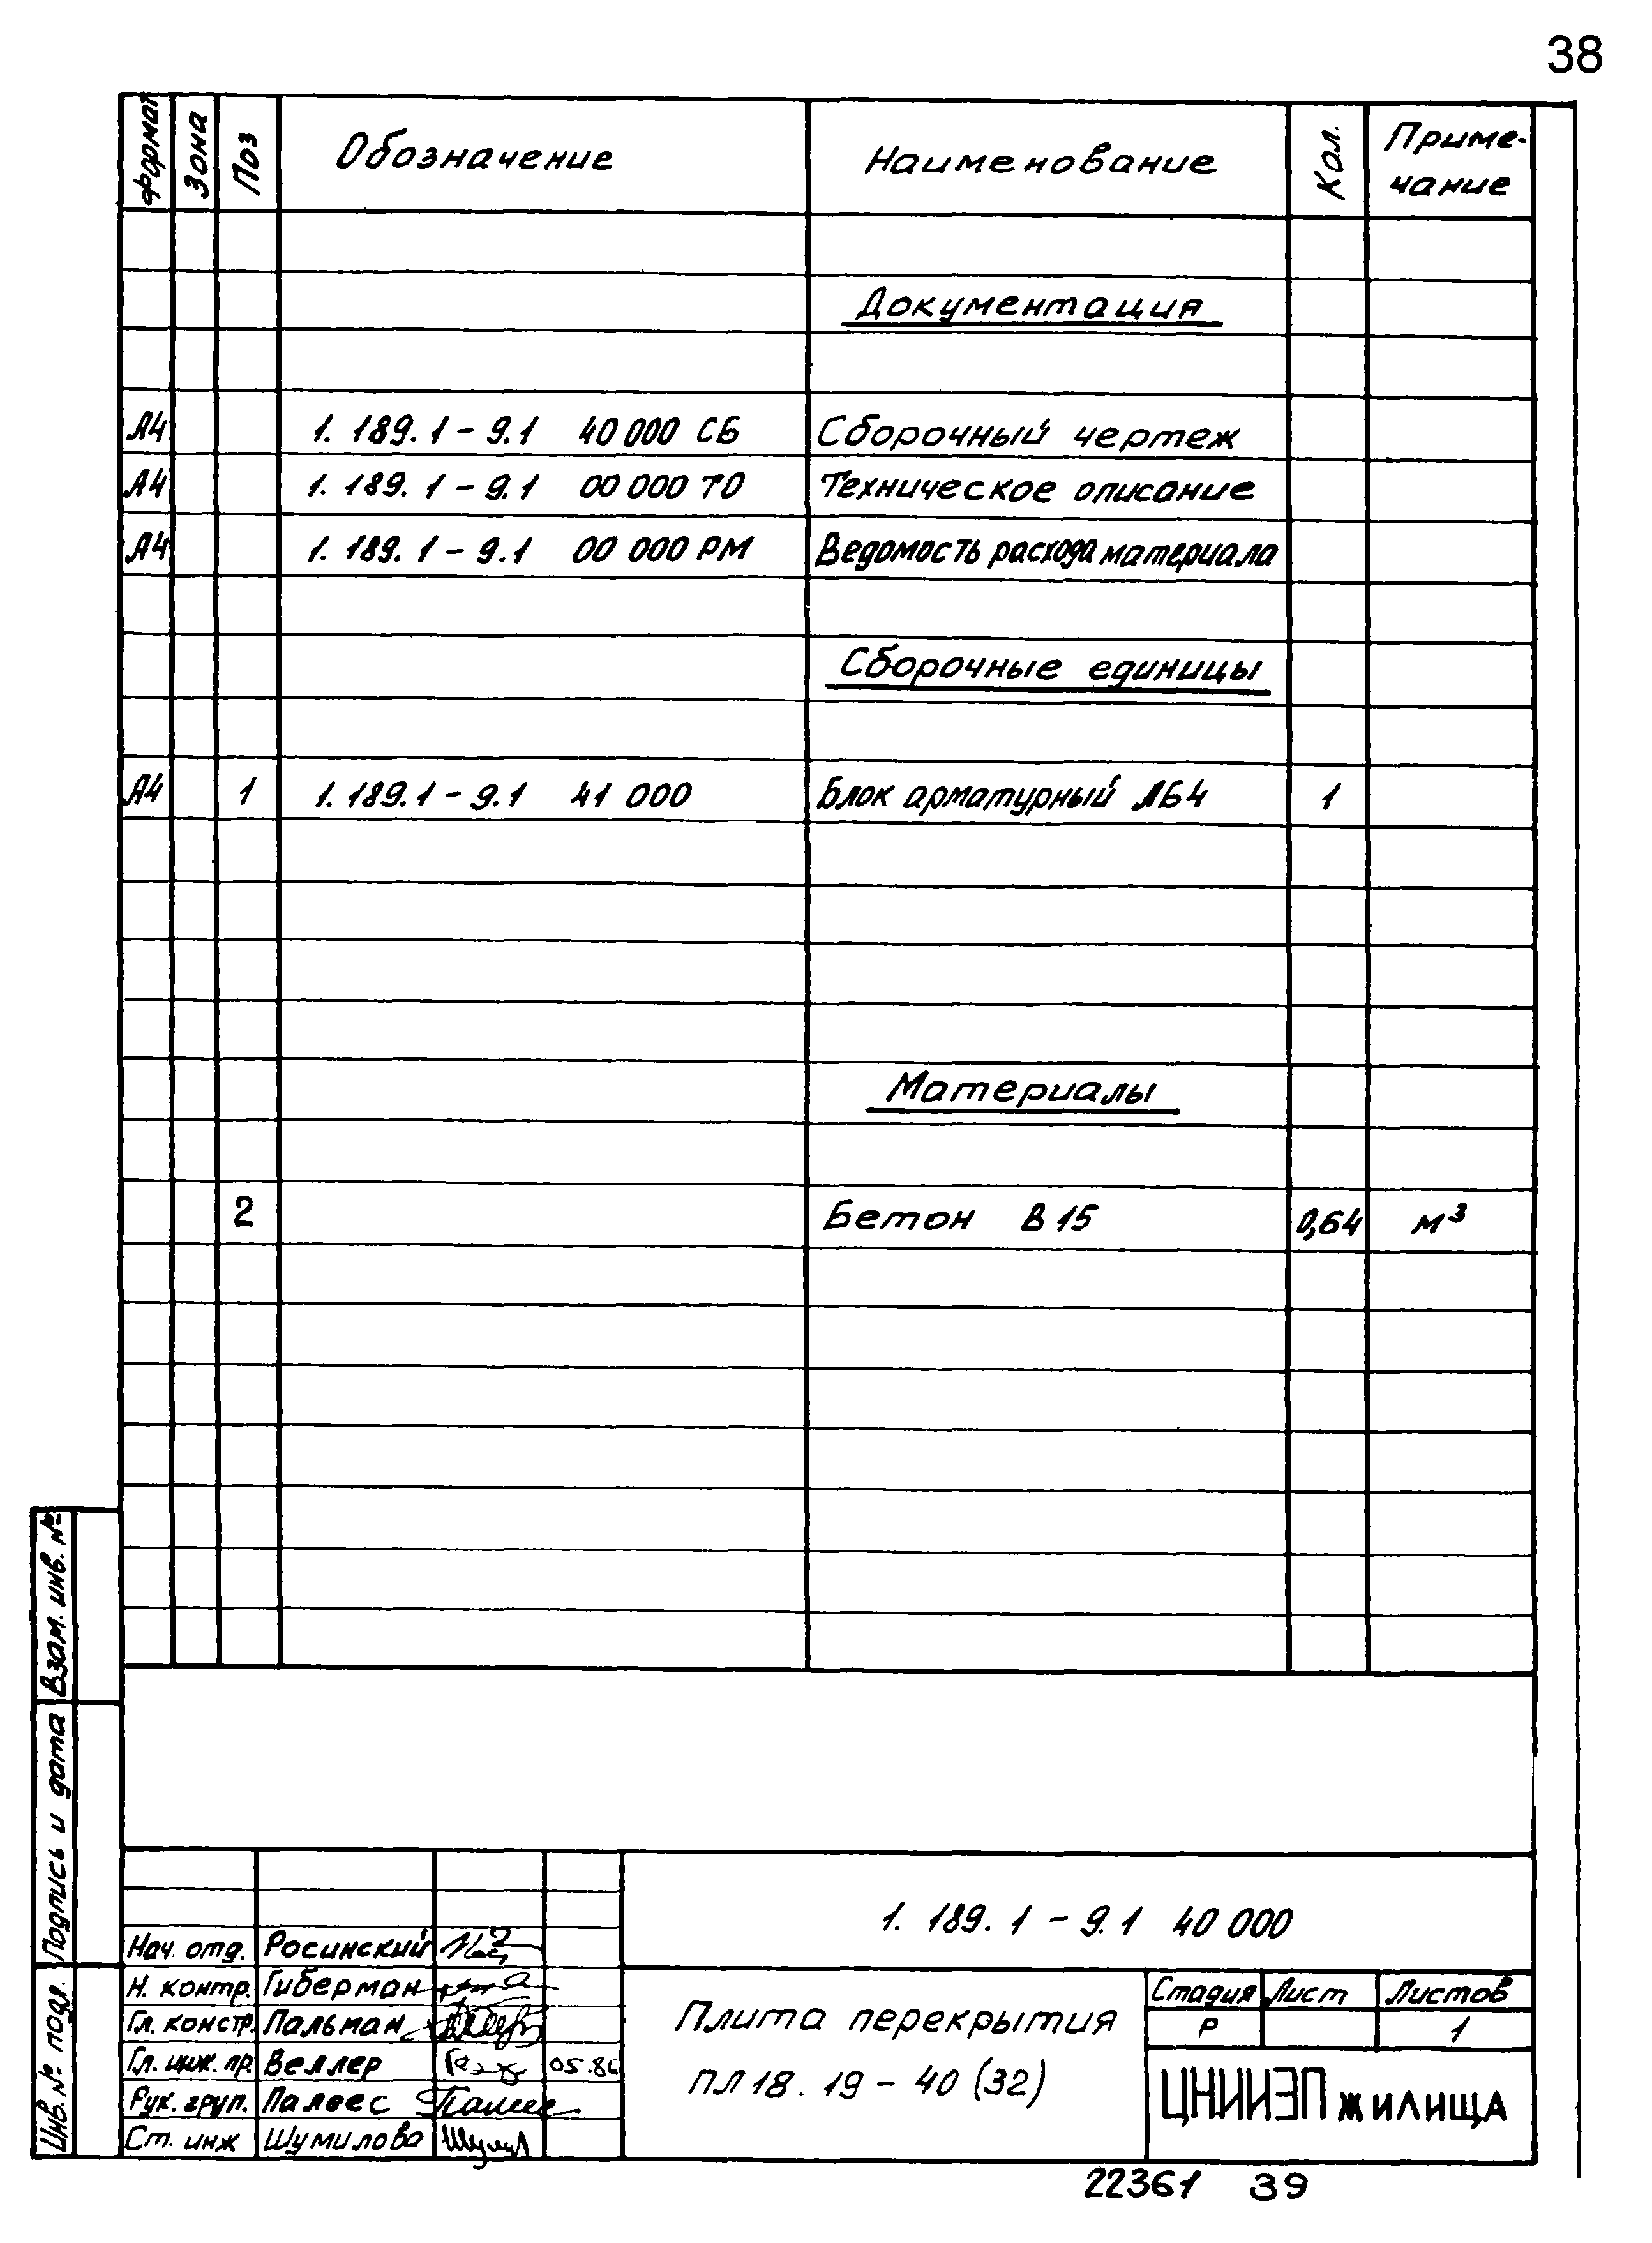 38
Формат Зона Поз Обозначение Наименование Кол. Приме-
чание
Документация
А4 1.189.1-9.1 40 000 СБ Сборочный чертеж
А4 1.189.1-9.1 00 000 ТО Техническое описание
А4 1.189.1-9.1 00 000 РМ Ведомость расхода материала
Сборочные единицы
А4 1 1.189.1-9.1 41 000 Блок арматурный АБ4 1
Материалы
2 Бетон В 15 0,64 м³
Взам. инв. №
Подпись и дата
Инв. № подл.
1.189.1-9.1 40 000
Нач. отд. Росинский
Н. контр. Гиберман
Гл. констр. Пальман
Гл. инж. пр. Веллер 05.86
Рук. груп. Палеес
Ст. инж Шумилова
Плита перекрытия
ПЛ 18.19-40 (32)
Стадия Лист Листов
Р 1
ЦНИИЭП жилища
22361 39